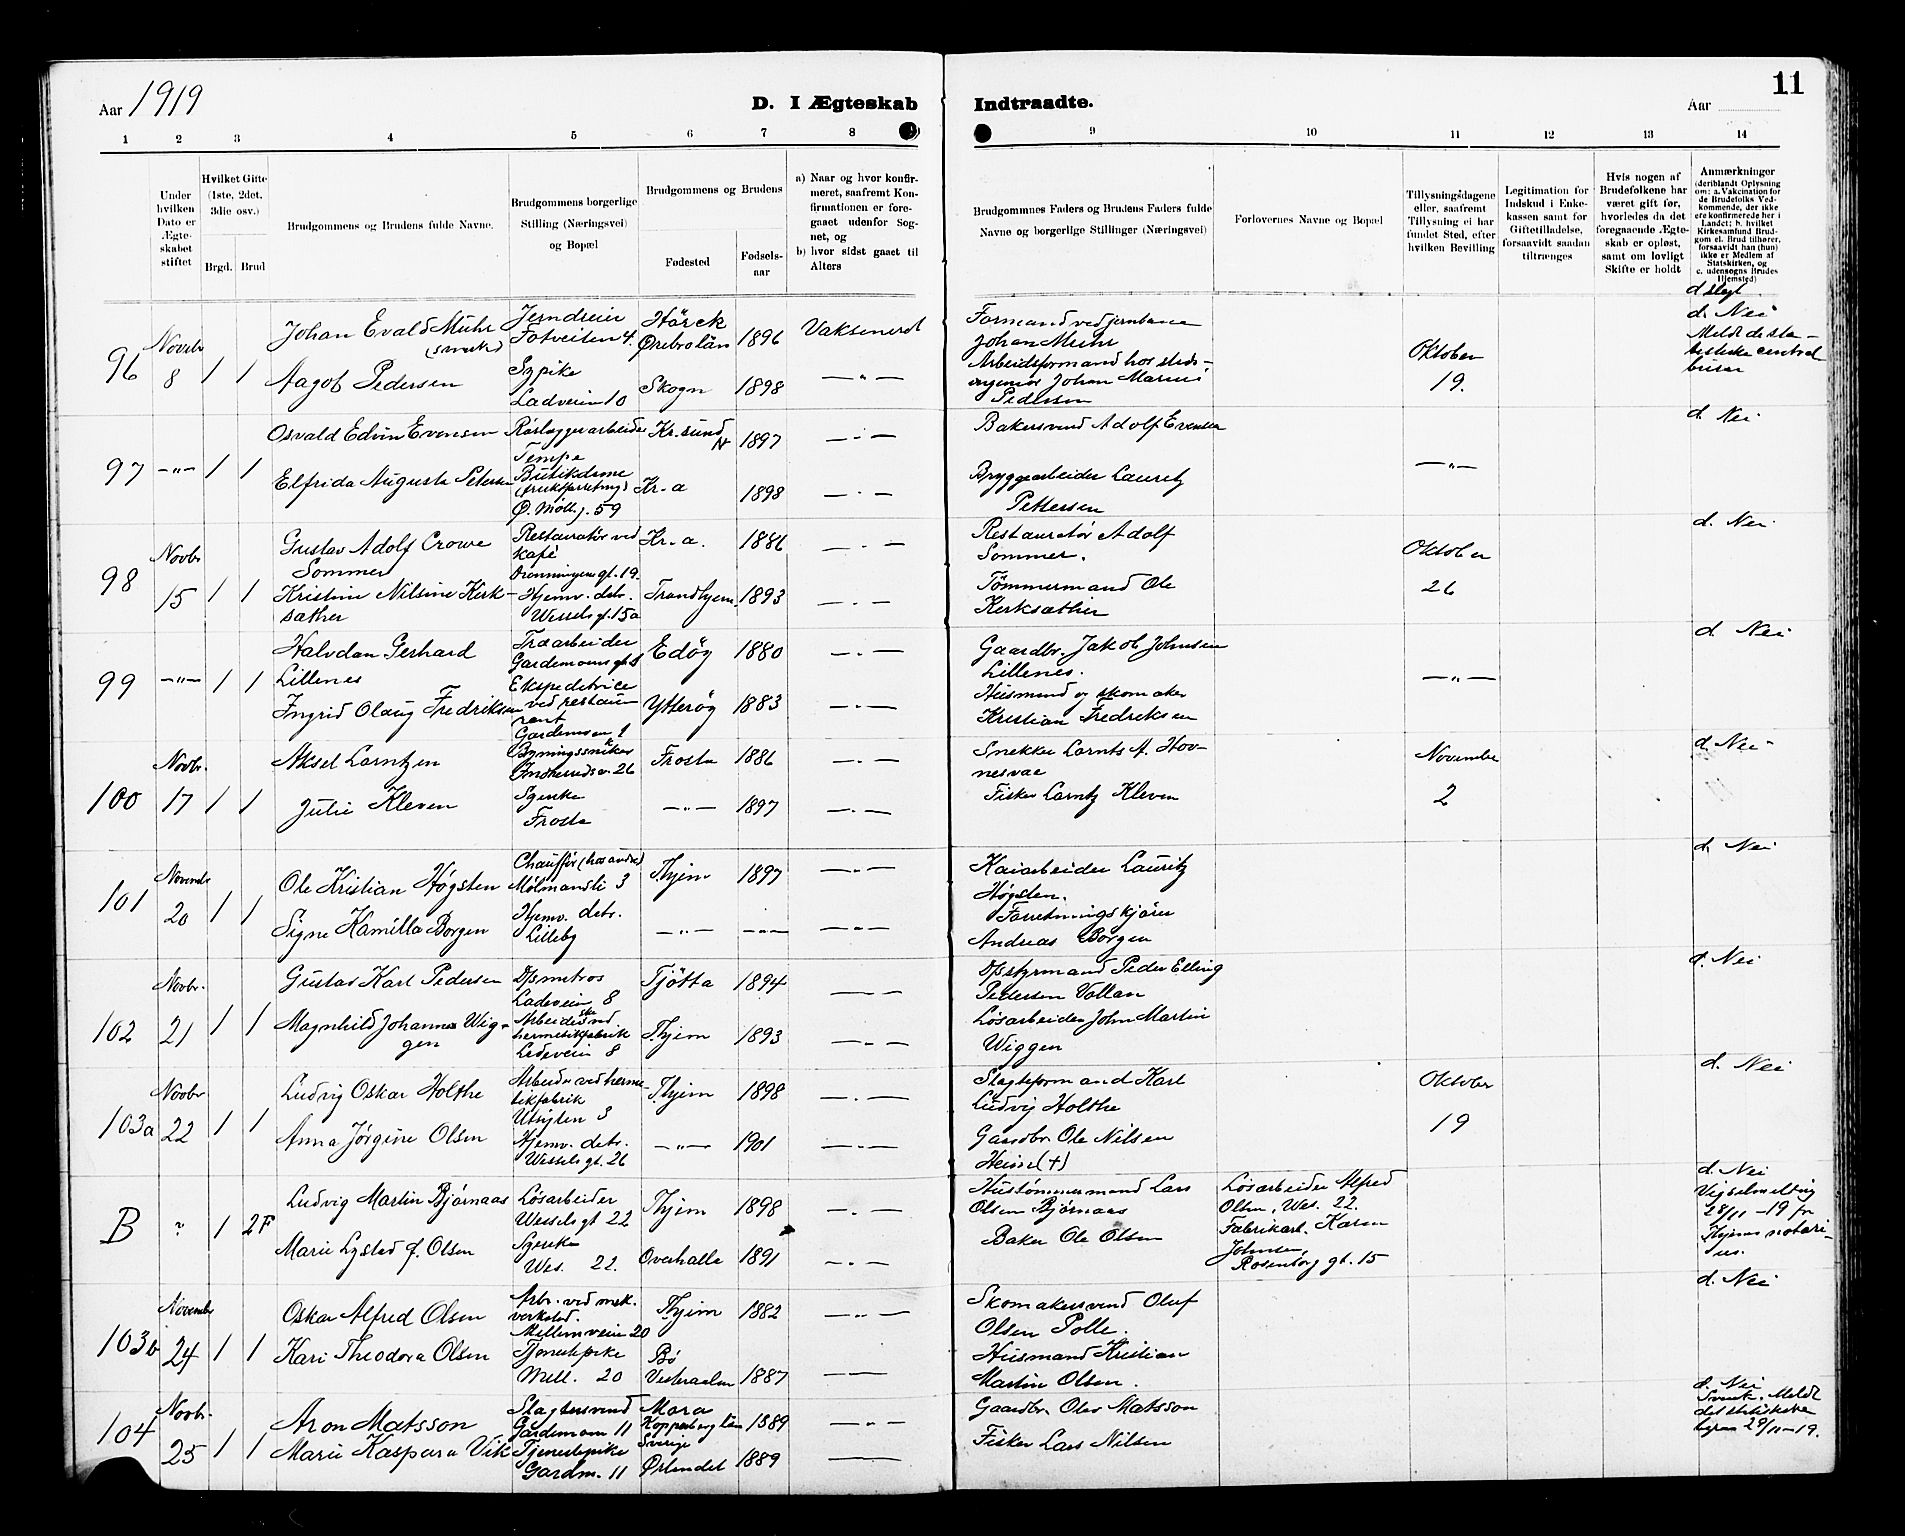 Aar 1919
D. I Ægteskab Indtraadte.
Aar
11
1 2 3 4 5 6 7 8 9 10 11 12 13 14
Under hvilken Dato er Ægteskabet stiftet
Hvilket Gifte (1ste, 2det, 3die osv.)
Brgd. Brud
Brudgommens og Brudens fulde Navne.
Brudgommens borgerlige Stilling (Næringsvei) og Bopæl
Brudgommens og Brudens
Fødested
Fødselsaar
a) Naar og hvor konfirmeret, saafremt Konfirmationen er foregaaet udenfor Sognet, og
b) hvor sidst gaaet til Alters
Brudgommnes Faders og Brudens Faders fulde Navne og borgerlige Stillinger (Næringsvei)
Forlovernes Navne og Bopæl
Tillysningsdagene eller, saafremt Tillysning ei har fundet Sted, efter hvilken Bevilling
Legitimation for Indskud i Enkekassen samt for Giftetilladelse, forsaavidt saadan tiltrænges
Hvis nogen af Brudefolkene har været gift før, hvorledes da det foregaaende Ægteskab er opløst, samt om lovligt Skifte er holdt
Anmærkninger (deriblandt Oplysning om: a. Vakcination for de Brudefolks Vedkommende, der ikke ere konfirmerede her i Landet; b. hvilket Kirkesamfund Brudgom el. Brud tilhører, forsaavidt han (hun) ikke er Medlem af Statskirken, og c. udensogns Brudes Hjemsted)
d slegt
96 Novbr 8 1 1
Johan Evald Muhr
Jerndreier
Fotveiten 4.
Örebro län 1896
Vaksinert
Formand ved jernbane
Johan Muhr
Oktober
19.
d. Nei
Aagot Pedersen
Sypike
Ladveien 10
Skogn 1898 — " —
Arbeidsformand hos
Johan Marius
Pedersen
97 — " — 1 1
Osvald Edvin Evensen
Rørlæggerarbeider
Tempe
Kr.sund N 1897 — " —
Bakersvend Adolf Evensen
— " —
d. Nei
Elfrida Augusta Petersen
Butikdame
Ø. Møll.g. 59
Kr-a 1898 — " —
Bryggearbeider Lauritz
Pettersen
98 Novbr 15 1 1
Gustav Adolf Crowe
Sommer
Restauratør ved
kafé
Dronningens gt. 19.
Kr.a. 1886 — " —
Restauratør Adolf
Sommer.
Oktober
26
d. Nei
Kristine Nilsine Kerk-
sæther
Hjemv. datr.
Wessels g. 15a
Trondhjem 1893 — " —
Tømmermand Ole
Kerksæther
99 — " — 1 1
Halvdan Gerhard
Lillenes
Træarbeider
Edöy 1880 — " —
Gaardbr. Jakob Johnsen
Lillenes.
— " —
d. Nei
Ingrid Olaug Fredriksen
Ekspeditrice
ved restau-
rant
Ytterøy 1883 — " —
Husmand og skomaker
Kristian Fredriksen
100 Novbr. 17 1 1
Aksel Larntzen
Bygningssnikker
Frosta 1886 — " —
Snekker Larnts A. Hov-
nesvae
November
2
d. Nei
Julie Kleven
Syerske
Frosta
— " — 1897 — " —
Fisker Larntz Kleven
101 Novembr 20 1 1
Ole Kristian Høgsten
Chauffør (hos andre)
Mølmansli 3
Thjem 1897 — " —
Kaiarbeider Lauritz
Høgsten.
d. Nei
Signe Kamilla Borgen
Hjemv. datr.
Lilleby
— " — — " — — " —
Forretningskjører
Andreas Borgen
102 Novbr. 21 1 1
Gustav Karl Pedersen
Dpsmatros
Ladeveien 8
Tjötta 1894 — " —
Dpstyrmand Peder Elling
Pedersen Vollan
d. Nei
Magnhild Johanna Wig-
gen
Arbeiderske ved
hermetikfabrik
Ladeveien 8
Thjem 1893 — " —
Løsarbeider John Martin
Wiggen
103a Novbr 22 1 1
Ludvig Oskar Holthe
Arbeider ved herme-
tikfabrik
Utsigten 3
Thjem 1898 — " —
Slagteformand Karl
Ludvig Holthe
Oktober
19
d. Nei
Anna Jørgine Olsen
Hjemv. datr.
Wessels gt. 26
— " — 1901 — " —
Gaardbr. Ole Nilsen
B ? 1 2F
Ludvig Martin Bjørnaas
Løsarbeider
Wessels gt 22
Thjem 1898 — " —
Hustømmermand Lars
Olsen Bjørnaas
Løsarbeider Alfred
Olsen, Wes. 22.
Fabrikarb. Karen
Johnsen,
Rosenborg gt. 15
d. Nei
Vigselmelding
28/11 - 19 fr
Thjems notari-
us.
Marie Lysted f. Olsen
Syerske
Wes. 22.
Overhalla 1891 — " —
Baker Ole Olsen
103b Novembr 24 1 1
Oskar Alfred Olsen
Arb. ved mek.
verksted.
Mellemveien 20
Thjem 1882 — " —
Skomakersvend Oluf
Olsen Polle.
d. Nei
Kari Theodora Olsen
Tjenestepike
Mell. 20
Bø
Vesteraalen 1887 — " —
Husmand Kristian
Martin Olsen.
104 Novbr. 25 1 1
Aron Matsson
Slagtersvend
Gardemoen 11
Mora
Kopperberg län
Sverige
1889 — " —
Gaardbr. Olov Matsson
d. Nei
Svensk. Meldt
det statistiske
byraa 29/11-19.
Marie Kaspara Vik
Tjenestepike
Gardm. 11
Ørlandet 1889
Fisker Lars Nilsen